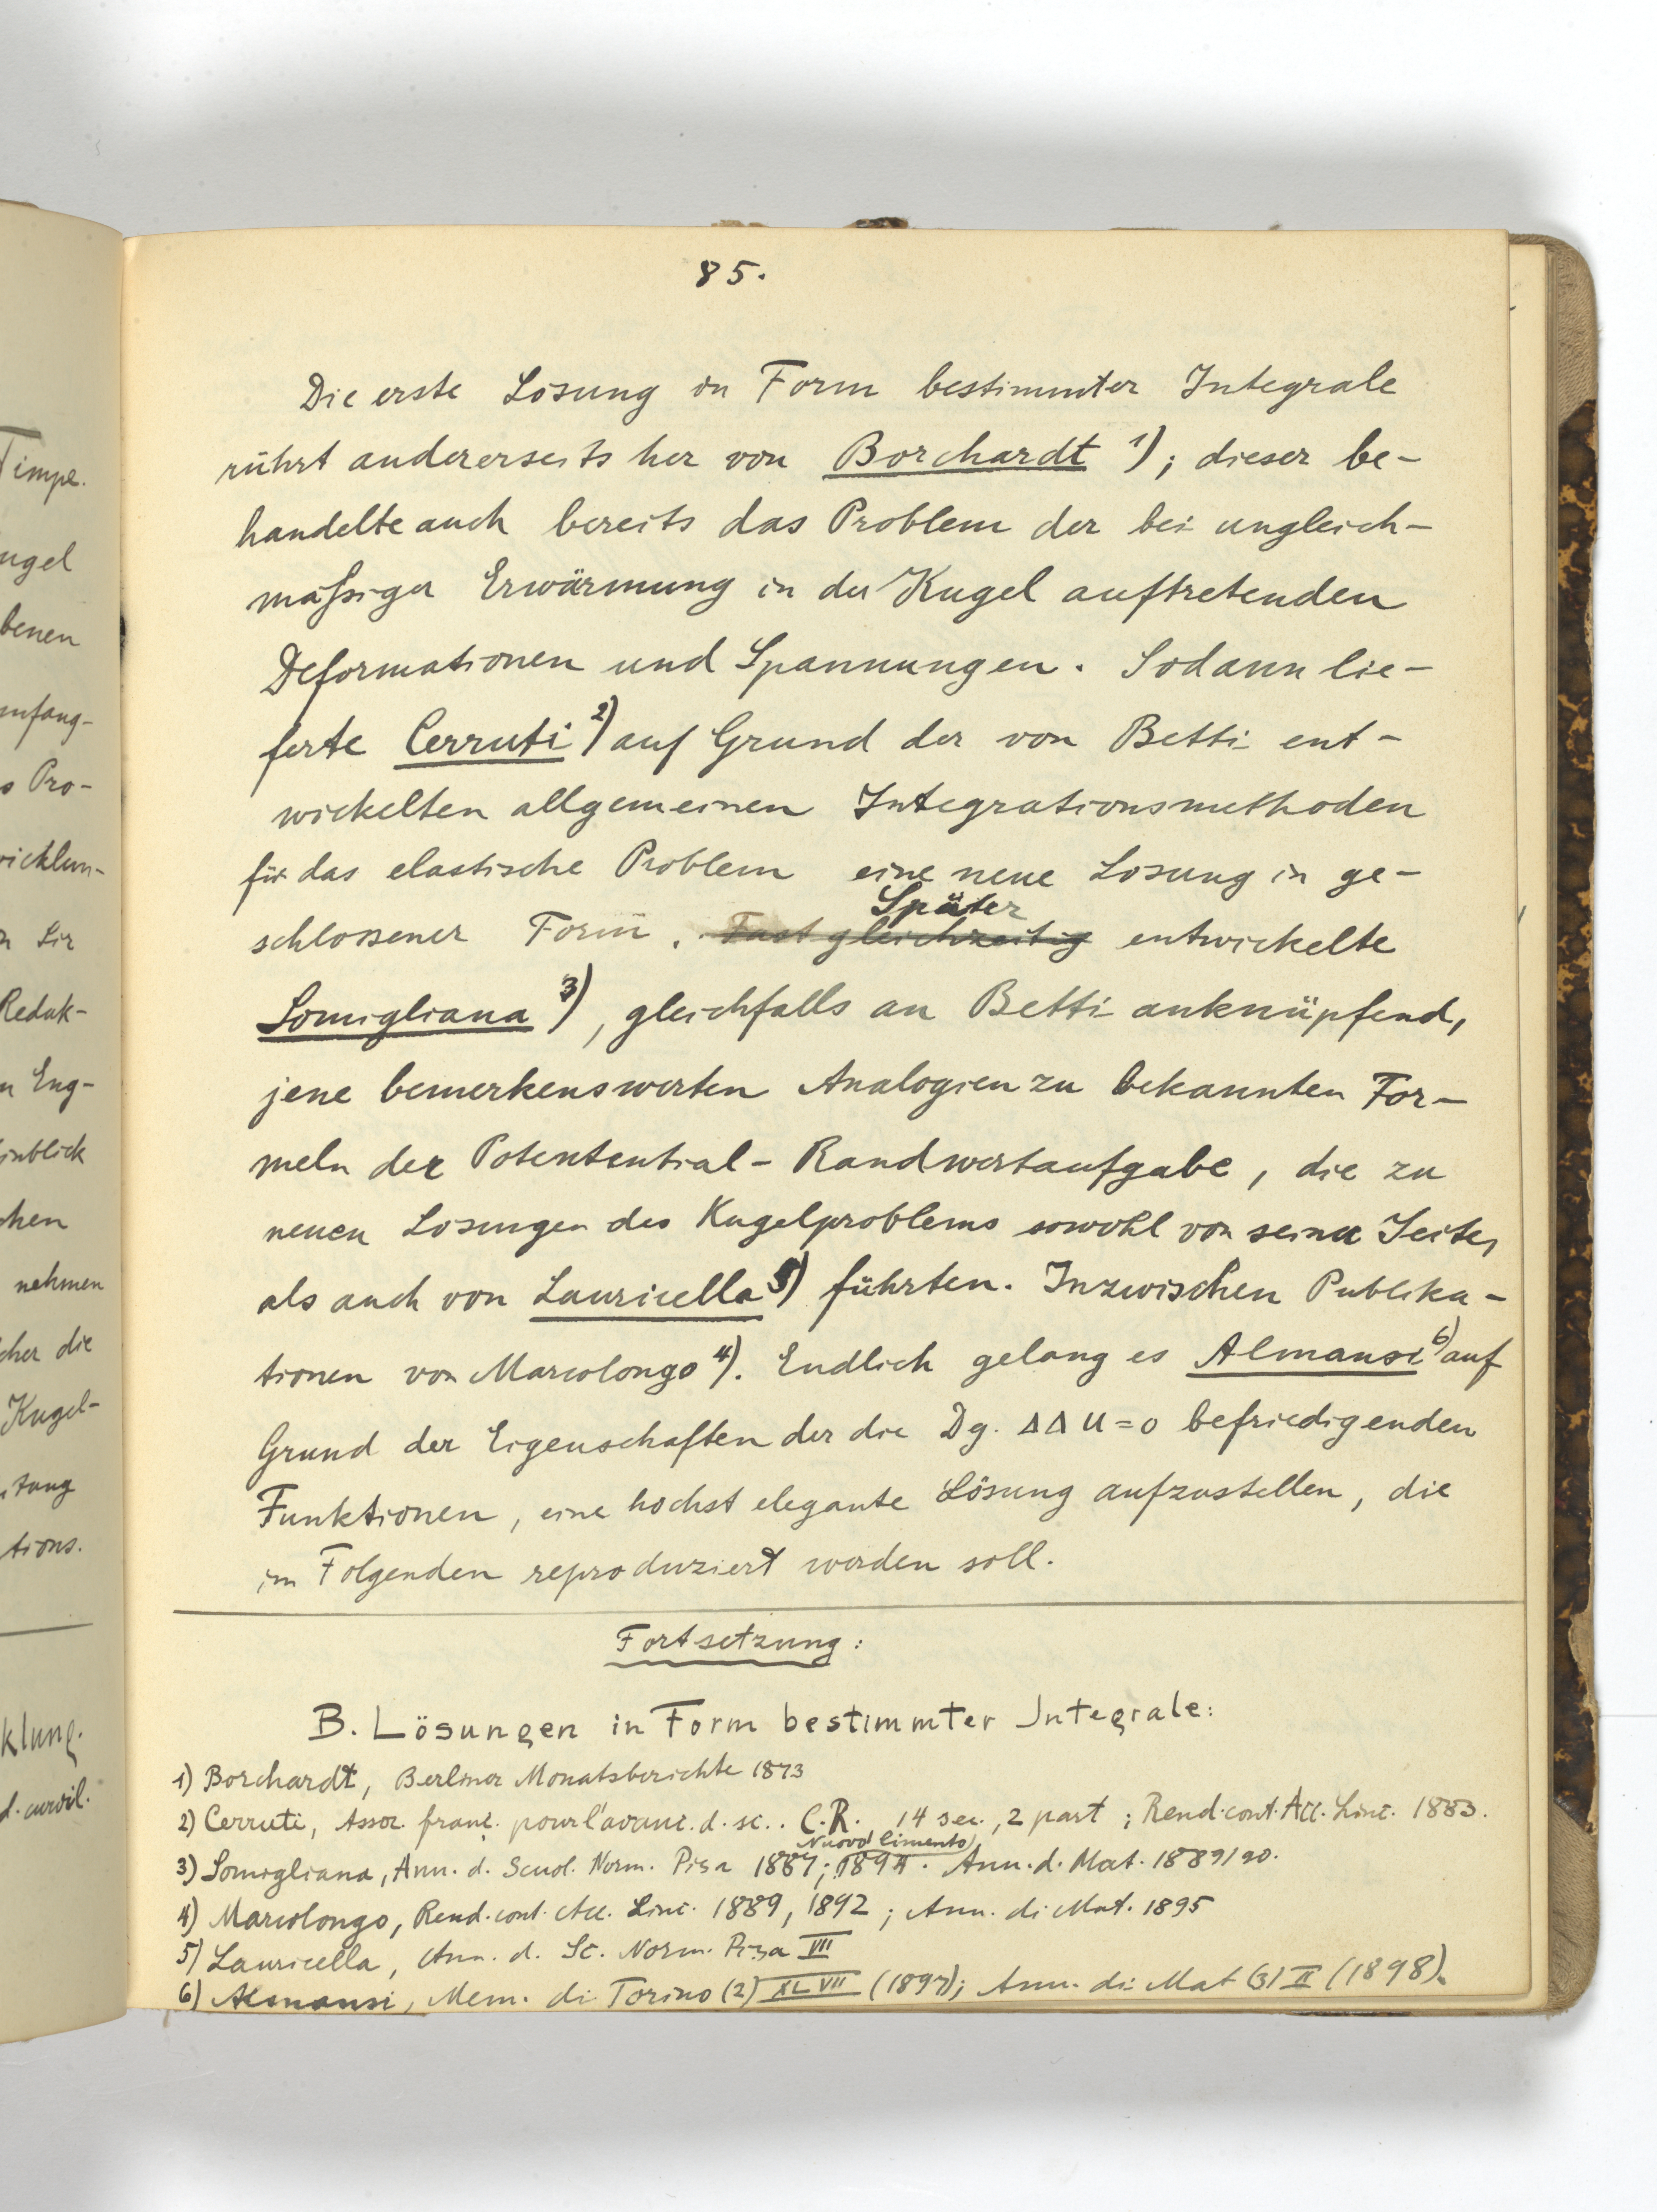 85.
Die erste Lösung in Form bestimmter Integrale
rührt andererseits her von Borchardt 1); dieser be-
handelte auch bereits das Problem der bei ungleich-
mäßiger Erwärmung in der Kugel auftretenden
Deformationen und Spannungen. Sodann lie-
ferte Cerruti 2) auf Grund der von Betti ent-
wickelten allgemeinen Integrationsmethoden
für das elastische Problem eine neue Lösung in ge-
Später
schlossener Form. Fast gleichzeitig entwickelte
Somigliana 3), gleichfalls an Betti anknüpfend,
jene bemerkenswerten Analogien zu bekannten For-
meln der Potentential-Randwertaufgabe, die zu
neuen Lösungen des Kugelproblems sowohl von seiner Seite,
als auch von Lauricella 5) führten. Inzwischen Publika-
tionen von Marcolongo 4). Endlich gelang es Almansi 6) auf
Grund der Eigenschaften der die Dg. ΔΔu=0 befriedigenden
Funktionen, eine höchst elegante Lösung aufzustellen, die
im Folgenden reproduziert werden soll.
Fortsetzung:
B. Lösungen in Form bestimmter Integrale:
1) Borchardt, Berliner Monatsberichte 1873
2) Cerruti, Assoc. franç. pour l'avanc. d. sc.. C.R. 14 sec., 2 part; Rend. cont. Acc. Linc. 1883.
Nuovo Cimento
3) Somigliana, Ann. d. Scuol. Norm. Pisa 1887; 1894. Ann. d. Mat. 1889/90.
4) Marcolongo, Rend. cont. Acc. Linc. 1889, 1892; Ann. di Mat. 1895
5) Lauricella, Ann. d. Sc. Norm. Pisa VII
6) Almansi, Mem. di Torino (2) XLVII (1897); Ann. di Mat (3) II (1898).
Timpe.
ugel
benen
anfang-
s Pro-
wicklun-
n Sir
Redak-
n Eng-
inblick
chen
nehmen
cher die
Kugel-
tung
tions.
klung.
d. curvil.